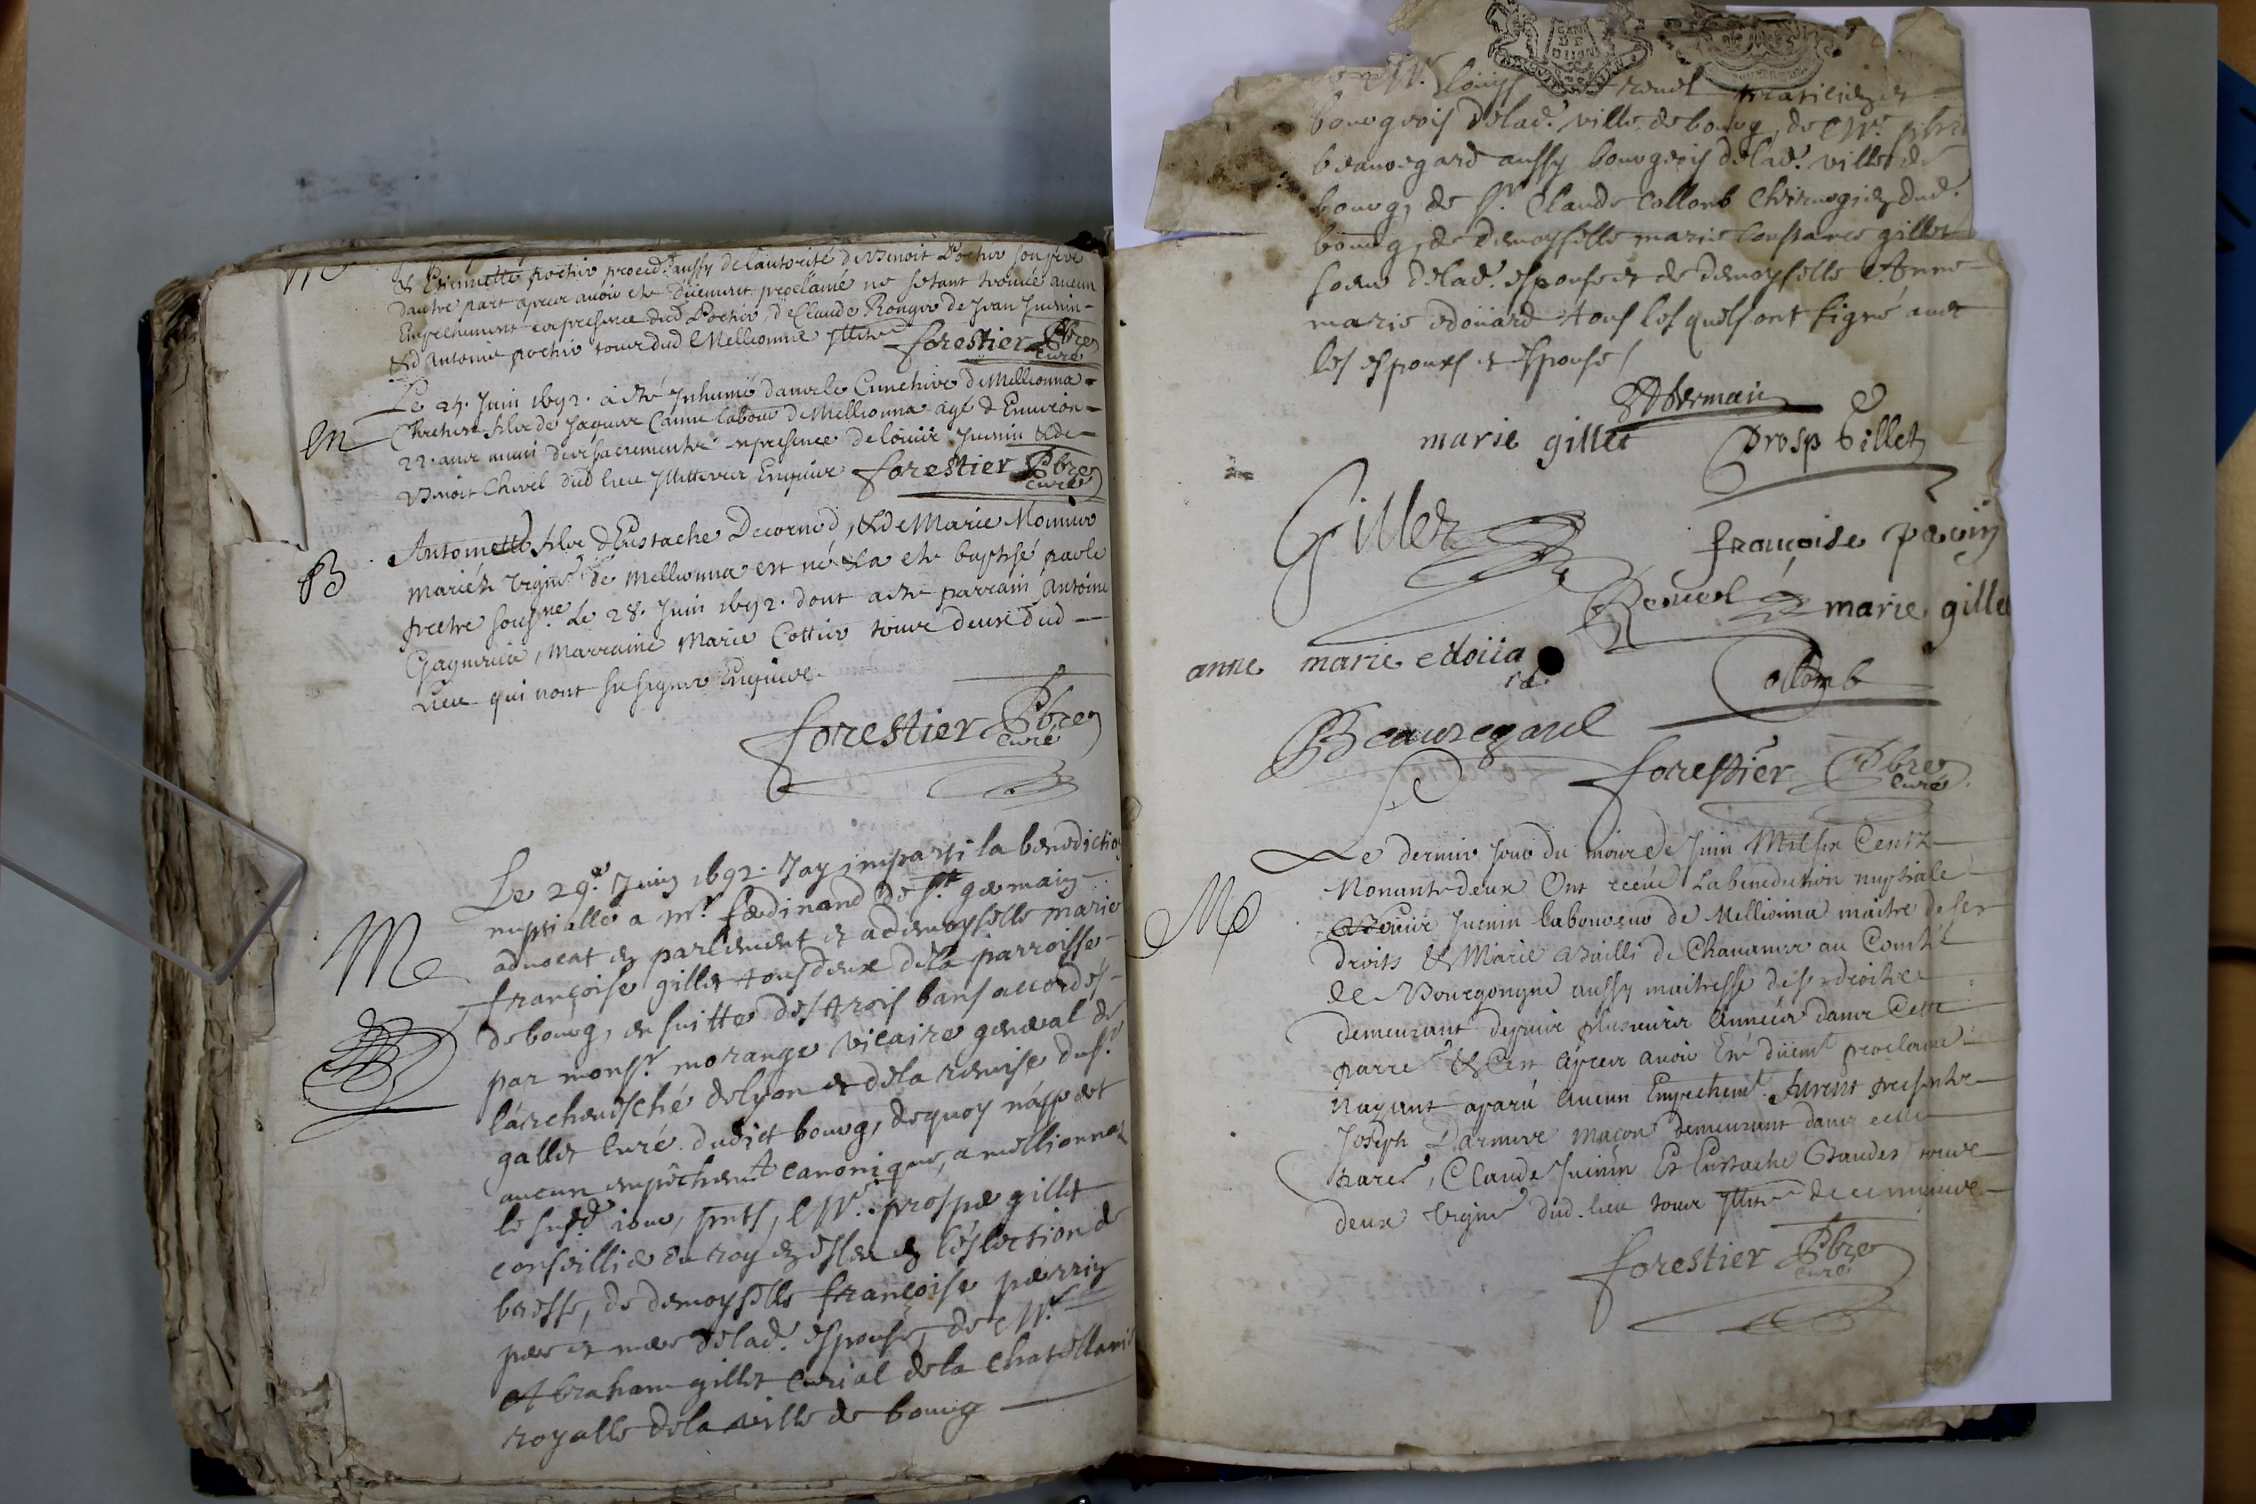 & Etiennette pochio proced. aussy de l'autorité de Benoit Pochio son pere
dautre part apres avoir été düement proclamé ne setant trouvé aucun
Empechement en presence dud Pochio, de Claude Rongio de Jean Juenin
& d'antoine pochio tous dud Mellionna forestier Pbre
curé
Le 25. Juin 1692. a été Inhumé dans le Cimetiere de Mellionna
m
22. ans muni des sacrements en presence de louis Juenin & de
Benoit Chevel dud lieu Illitteres Enquis forestier Pbre
curé
Antoinette filie d'Eustache Decornod, & de Marie Monnier
B
mariés vign. de Mellionna est né & a eté baptisé par le
pretre sous.né Le 28. Juin 1692. dont a été parrain Antoine
marraine Marie Cottier tous deux dud
Lieu qui nont su signer Enquis.
forestier Pbre
curé
Le 29.e Juin 1692. Jay imparti la benediction
nuptialle a Mr. ferdinand de St. germain
M
advocat en parlement et a demoyselle marie
françoise gillet tous deux de la parroisse
de bourg, en suitte des trois bans accordés
par monsr. morange vicaire general de
l'archevesché de lyon et de la remise du sr.
gallet curé dudict bourg, de quoy n'appert
aucun empêchemt canonique, a mellionnaz
le susd. jour, pnts, Mr. prosper gillet
conseillier du roy en eslen en l'eslection de
bresse, de demoyselle françoise perrin
pere et mere de lad. espouse, de Mr.
Abraham gillet curial de la chatellanie
royalle de la ville de bourg
Mr. louys renel praticien et
bourgeois de lad. ville de bourg, de Mr.
beauregard aussy bourgeois de lad. ville de
bourg, de sr. Claude Collomb Chirurgien dud.
bourg, de demoyselle marie Constance gillet
soeur de lad. espouse et de demoyselle Anne
marie edoüard tous lesquels ont signé avec
les espoux et espouse
St Germain
marie gillet prosp Gillet
Gillet
françoise perin
Renel marie gillet
anne marie edoüa
rd
Collomb
Beauregard
forestier Pbre
curé
Le dernier jour du mois de Juin Mil six Cents
Nonante deux Ont receu La benediction nuptiale
M
Louis Juenin laboureur de Mellionna maitre de ses
droits & Marie Bailli de Chavannes au Comté
de Bourgongne aussy maitresse de ses droits
demeurant depuis plusieurs années dans cette
parre & C'est apres avoir Eté düemt proclamé
Nayant aparu aucun Empechemt. furent presents
Joseph Darmere maçon demeurant dans cette
parre, Claude Juenin Et Eustache Gaudet tous
deux vign. dud. lieu tous de ce enquis
forestier Pbre
curé